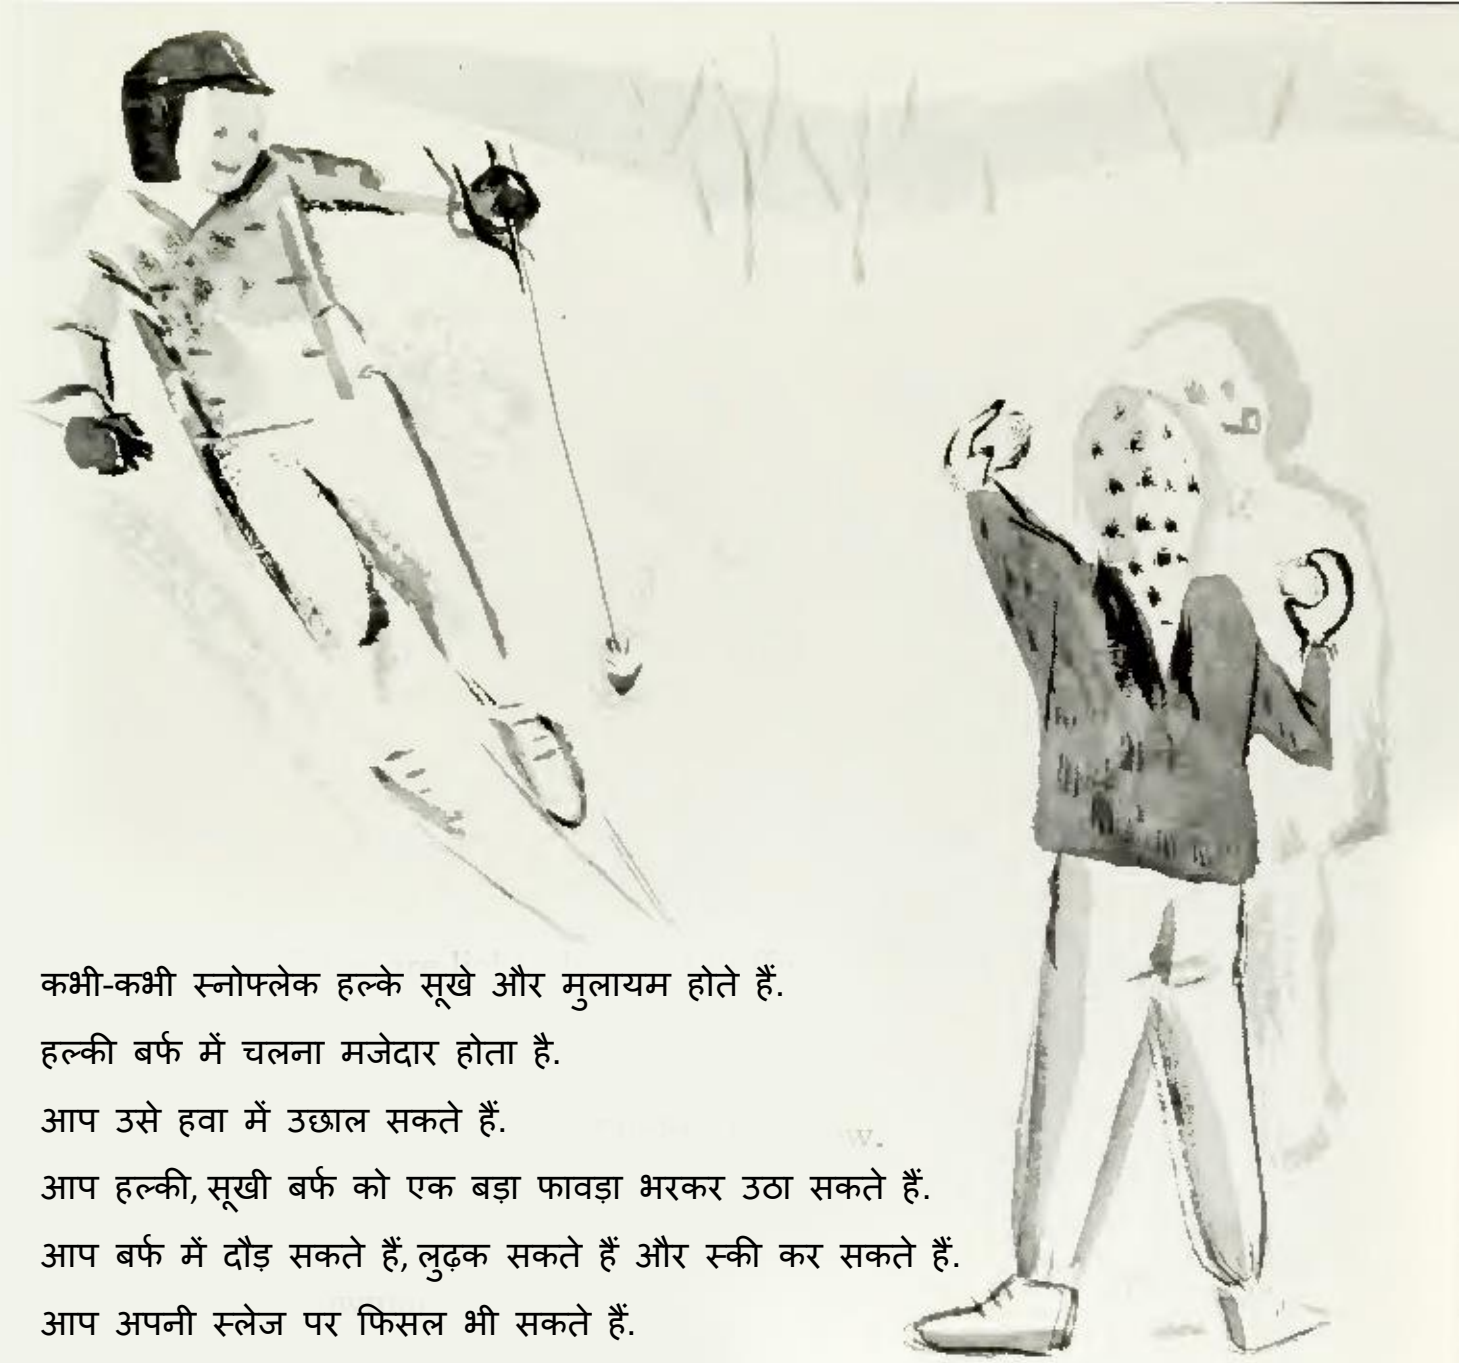 कभी-कभी स्नोफ्लेक हल्के सूखे और मुलायम होते हैं.
हल्की बर्फ में चलना मजेदार होता है.
आप उसे हवा में उछाल सकते हैं.
आप हल्की, सूखी बर्फ को एक बड़ा फावड़ा भरकर उठा सकते हैं.
आप बर्फ में दौड़ सकते हैं, लुढ़क सकते हैं और स्की कर सकते हैं.
आप अपनी स्लेज पर फिसल भी सकते हैं.